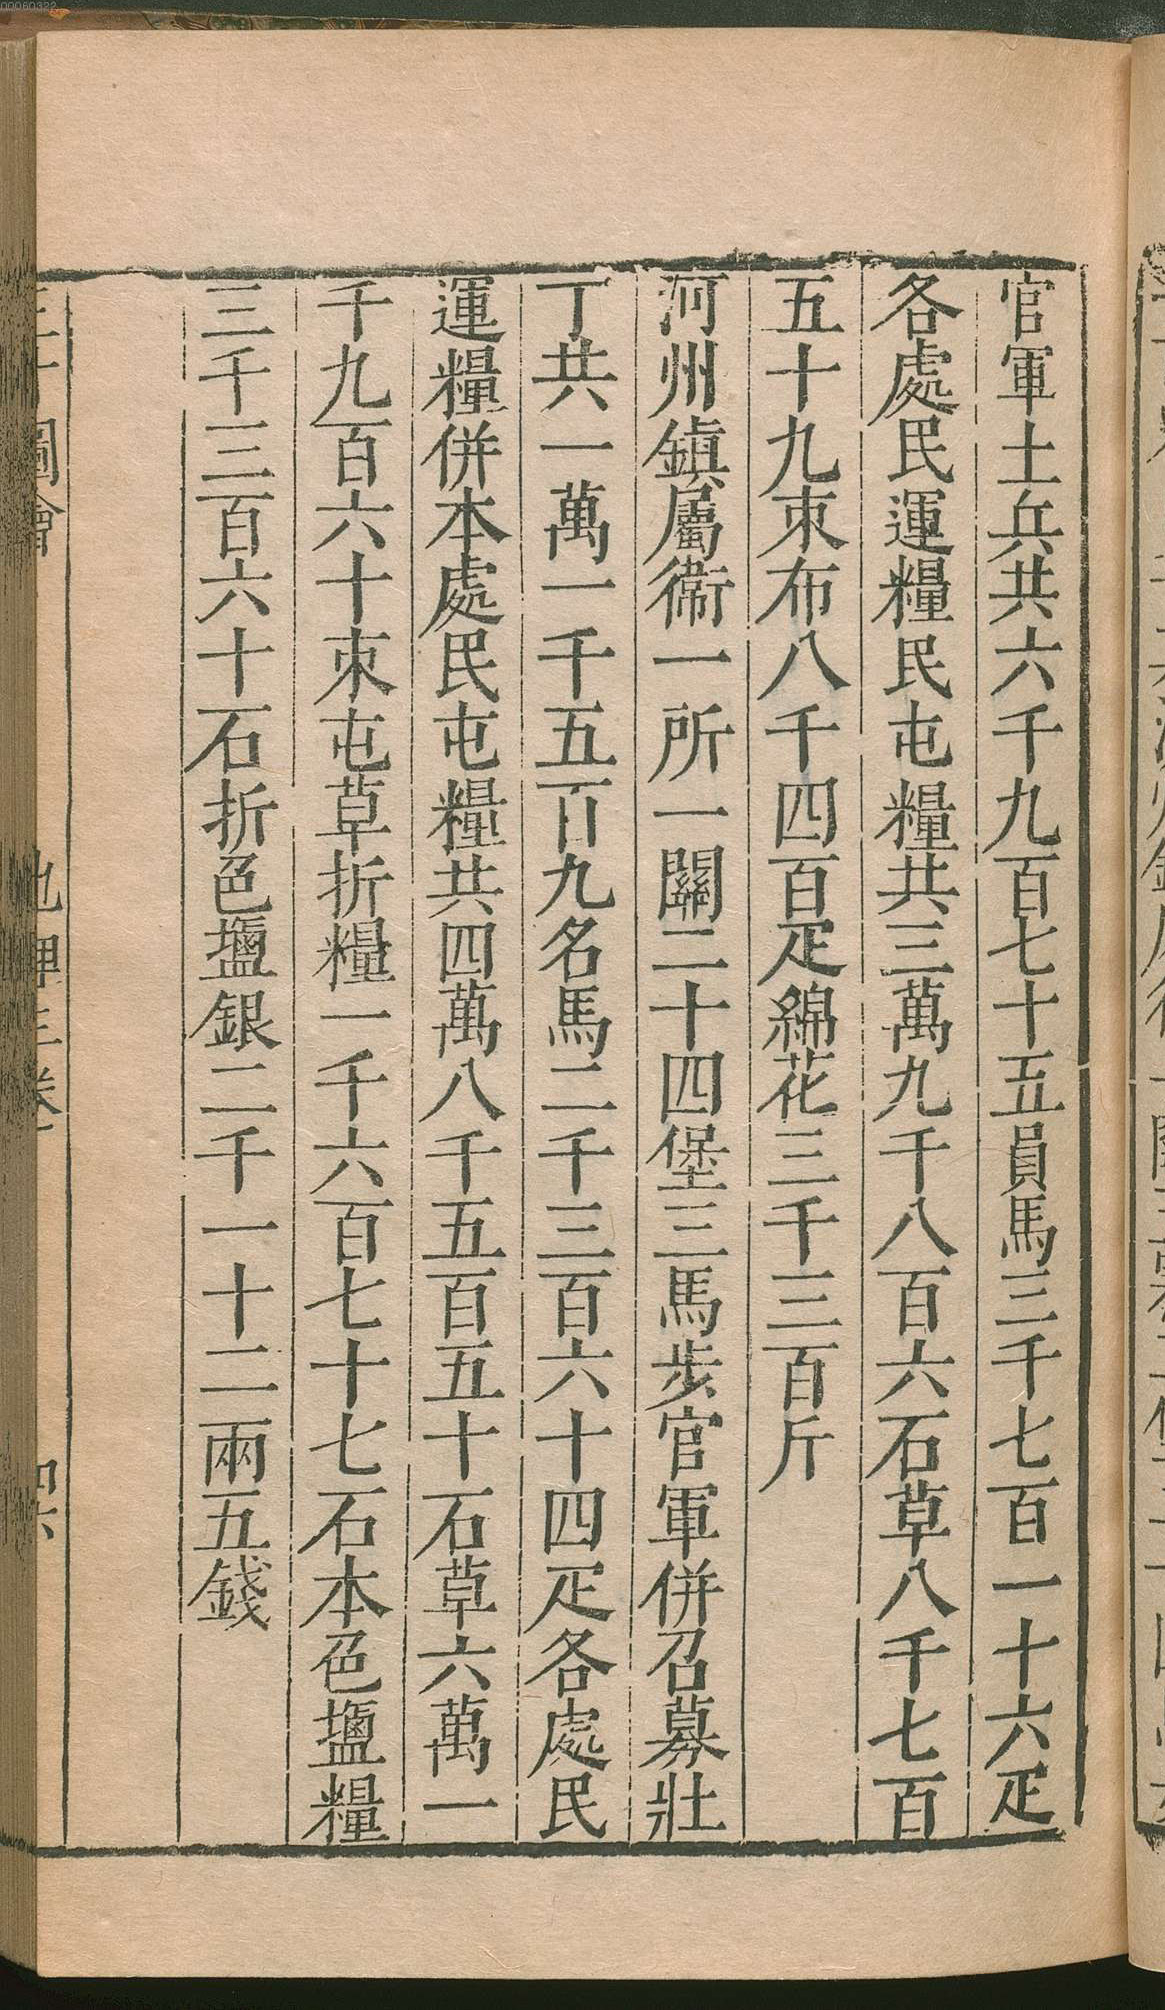 官軍土兵共六千九百七十五員馬三千七百一十六疋
各處民運糧民屯糧共三萬九千八百六石草八千七百
五十九束布八千四百疋綿花三千三百斤
河州鎮屬衞一所一關二十四堡三馬步官軍併召募壯
丁共一萬一千五百九名馬二千三百六十四疋各處民
運糧併本處民屯糧共四萬八千五百五十石草六萬一
千九百六十束屯草折糧一千六百七十七石本色鹽糧
三千三百六十石折色鹽銀二千一十二兩五錢
圖會
00060322